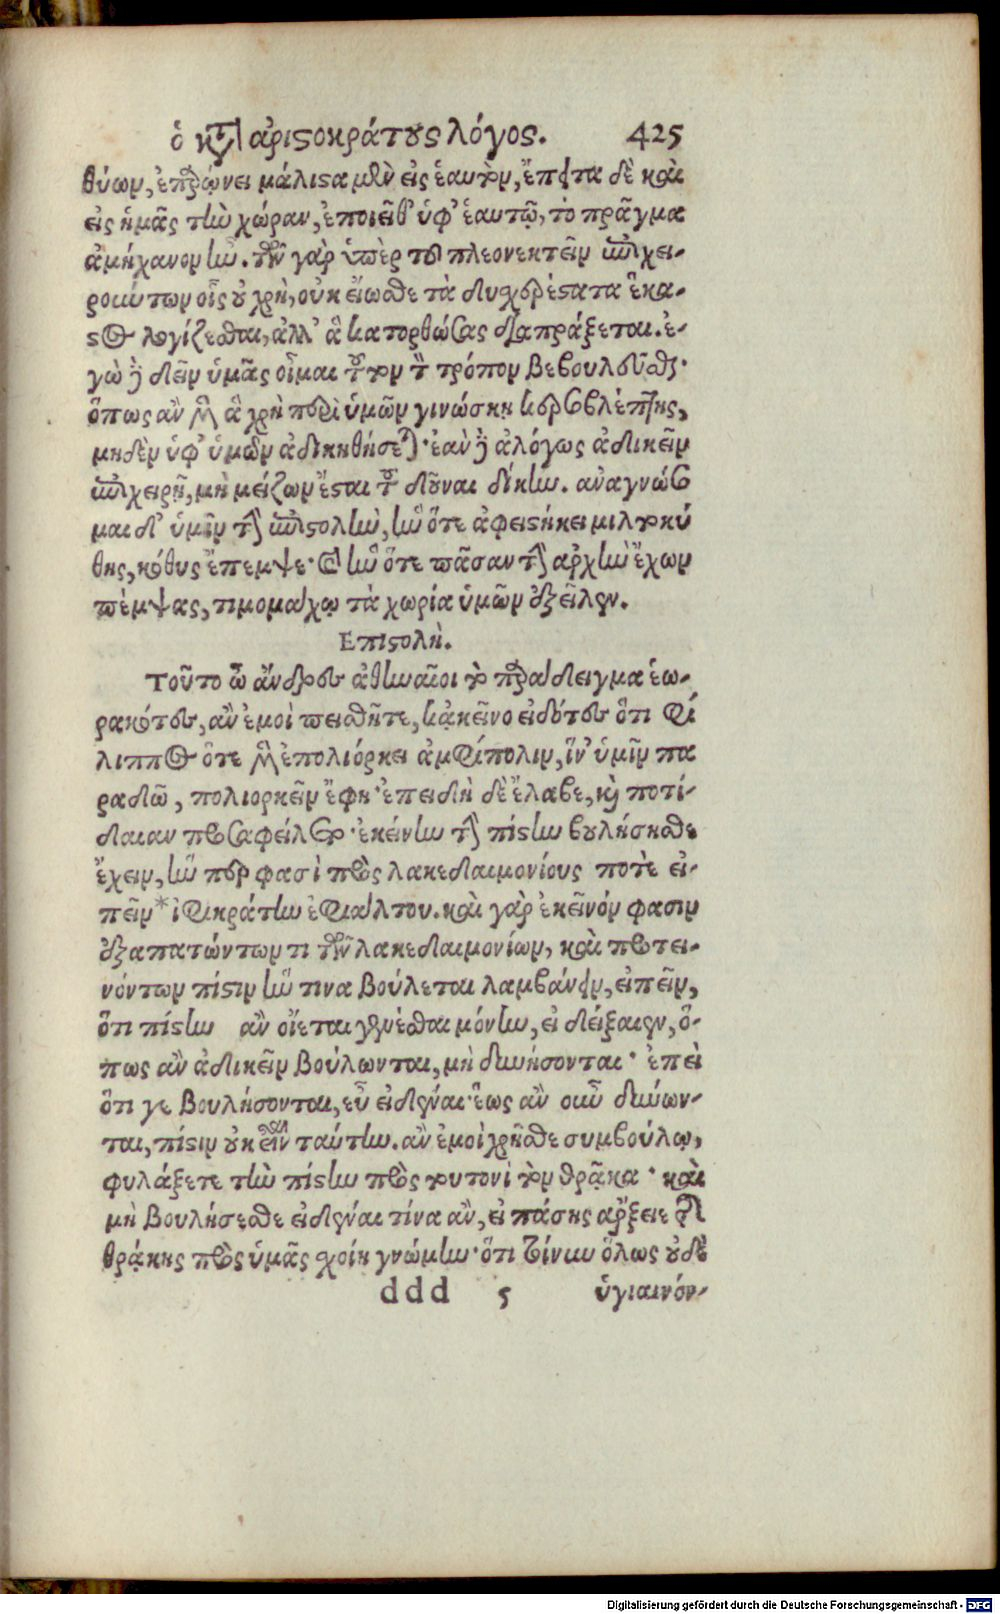 ὁ κατ' ἀριστοκράτους λόγος. 425
θύων, ἐπεφώνει μάλιστα μὲν εἰς ἑαυτὸν, ἔπειτα δὲ καὶ
εἰς ἡμᾶς τὴν χώραν, ἐποιεῖθ' ὑφ' ἑαυτῷ, τὸ πρᾶγμα
ἀμήχανον ἦν. τῶν γὰρ ὑπὲρ τοῦ πλεονεκτεῖν ἐπιχει-
ρούντων οἷς οὐ χρὴ, οὐκ εἴωθε τὰ δυσχερέστατα ἕκα-
στος λογίζεσθαι, ἀλλ' ἃ κατορθώσας διαπράξεται. ἐ-
γὼ δὲ δεῖν ὑμᾶς οἶμαι τοῦτον τὸν τρόπον βεβουλεῦσθαι·
ὅπως ἂν μὲν ἃ χρὴ περὶ ὑμῶν γινώσκῃ κερσοβλέπτης,
μηδὲν ὑφ' ὑμῶν ἀδικηθήσεται· ἐὰν δὲ ἀλόγως ἀδικεῖν
ἐπιχειρῇ, μὴ μείζων ἔσται τοῦ δοῦναι δίκην. ἀναγνώσο
μαι δ' ὑμῖν τὴν ἐπιστολὴν, ἣν ὅτε ἀφειστήκει μιλτοκύ
θης, κότυς ἔπεμψε· καὶ ἣν ὅτε πᾶσαν τὴν ἀρχὴν ἔχων
πέμψας, τιμομάχῳ τὰ χωρία ὑμῶν ἐξεῖλεν.
Επιστολὴ.
Τοῦτο ὦ ἄνδρες ἀθηναῖοι τὸ παράδειγμα ἑω-
ρακότες, ἂν ἐμοὶ πεισθῆτε, κἀκεῖνο εἰδότες ὅτι φί
λιππος ὅτε μὲν ἐπολιόρκει ἀμφίπολιν, ἵν' ὑμῖν πα
ραδῶ, πολιορκεῖν ἔφη· ἐπειδὴ δὲ ἔλαβε, καὶ ποτί-
δαιαν προσαφείλετο· ἐκείνην τὴν πίστιν βουλήσησθε
ἔχειν, ἥν περ φασὶ πρὸς λακεδαιμονίους ποτὲ εἰ-
πεῖν * ἰφικράτην ἐφιάλτου. καὶ γὰρ ἐκεῖνόν φασιν
ἐξαπατώντων τι τῶν λακεδαιμονίων, καὶ προτει-
νόντων πίστιν ἥν τινα βούλεται λαμβάνειν, εἰπεῖν,
ὅτι πίστιν ἂν οἴεται γενέσθαι μόνην, εἰ δείξαιεν, ὅ-
πως ἂν ἀδικεῖν βούλωνται, μὴ δυνήσονται· ἐπεὶ
ὅτι γε βουλήσονται, εὖ εἰδέναι· ἕως ἂν οὖν δύνων-
ται, πίστιν οὐκ εἶναι ταύτην. ἂν ἐμοὶ χρῆσθε συμβούλῳ,
φυλάξετε τὴν πίστιν πρὸς τουτονὶ τὸν θρᾷκα· καὶ
μὴ βουλήσεσθε εἰδέναι τίνα ἂν, εἰ πάσης ἄρξειε τῆς
θρᾴκης πρὸς ὑμᾶς σχοίη γνώμην· ὅτι τοίνυν ὅλως οὐδὲ
ddd 5 ὑγιαινόν-
Digitalisierung gefördert durch die Deutsche Forschungsgemeinschaft - DFG